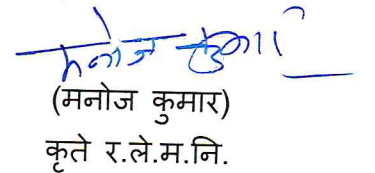 मनोज कुमार
(मनोज कुमार)
कृते र.ले.म.नि.